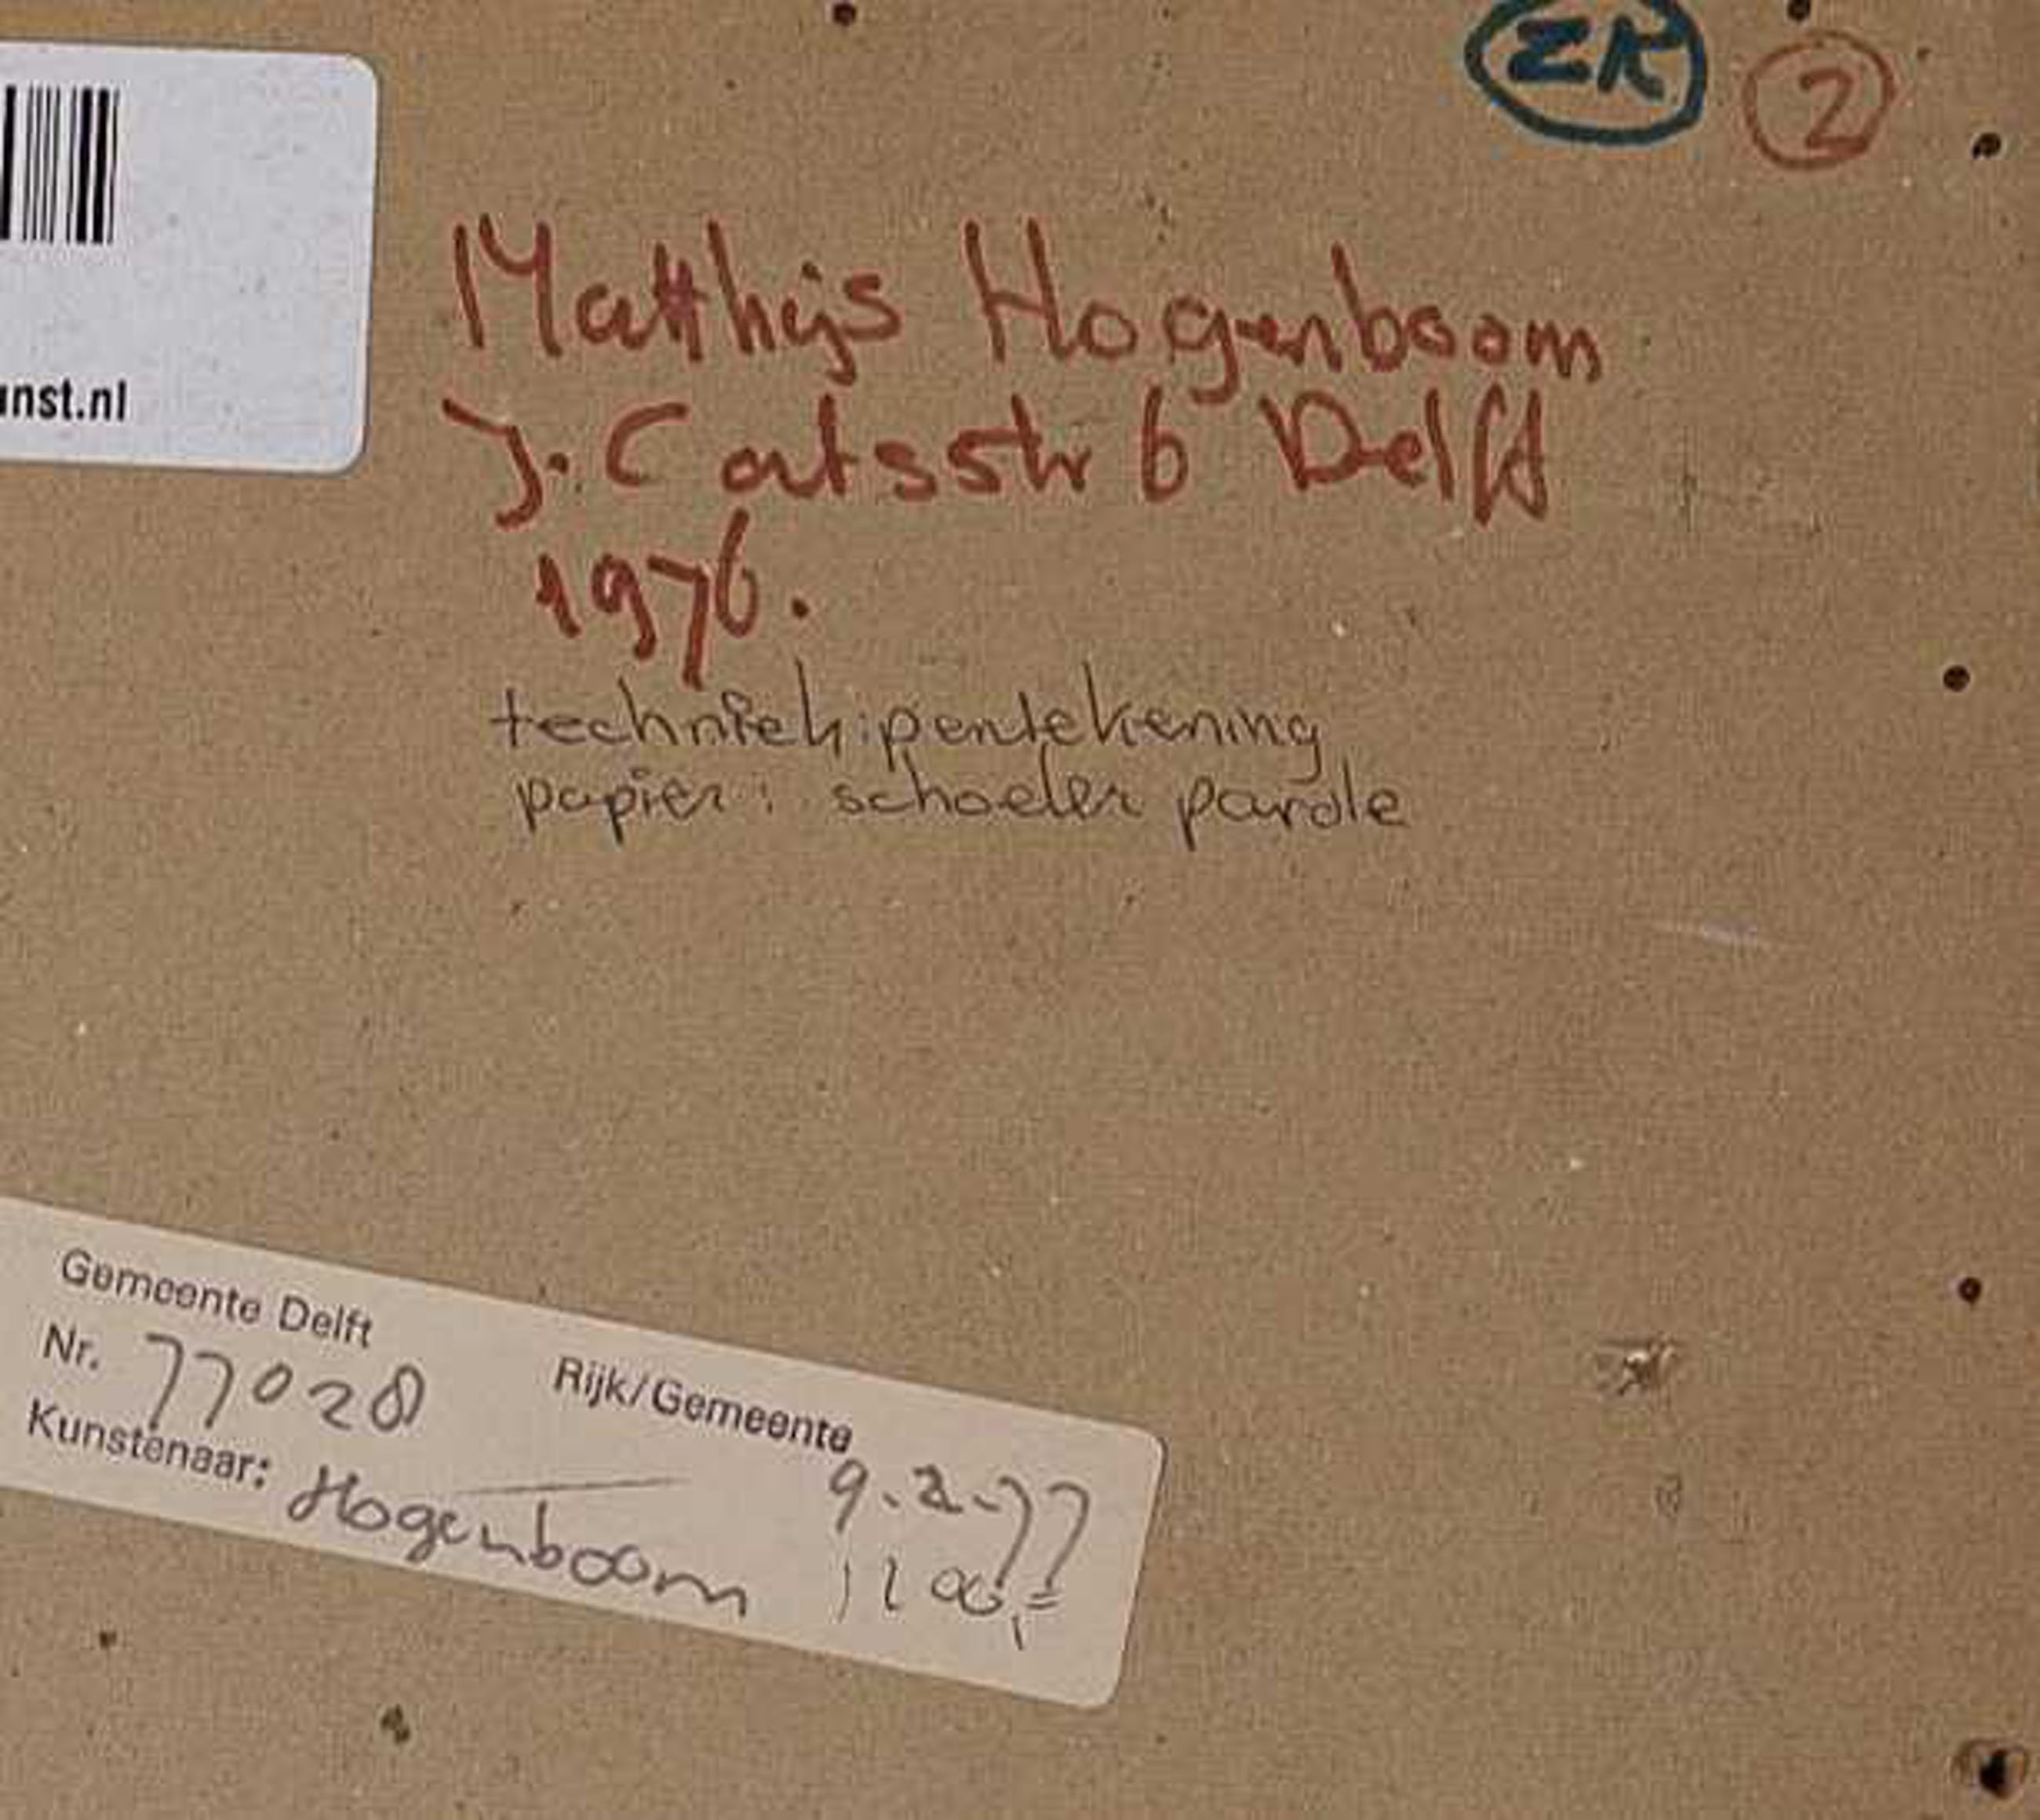 ZK 2
unst.nl
Matthijs Hogenboom
J. Catsstr 6 Delft
1976.
techniek: pentekening
papier: schoeler parole
Gemeente Delft
Nr. 77028
Rijk/Gemeente
Kunstenaar: Hogenboom
9.2.77
1200,=